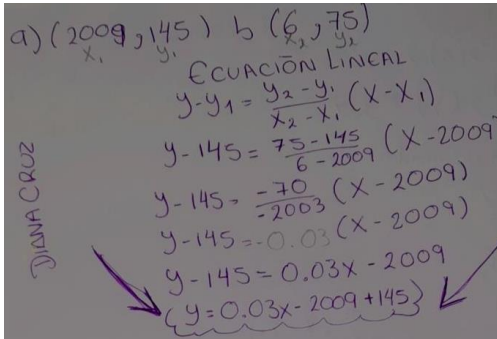 a) (2009, 145) b (6, 75)
x₁ y₁ x₂ y₂
ECUACIÓN LINEAL
y-y₁ = y₂-y₁/x₂-x₁ (x-x₁)
y-145 = 75-145/6-2009 (x-2009)
y-145 = -70/-2003 (x-2009)
y-145 = -0.03 (x-2009)
y-145 = 0.03x-2009
(y=0.03x-2009+145)
DIANA CRUZ